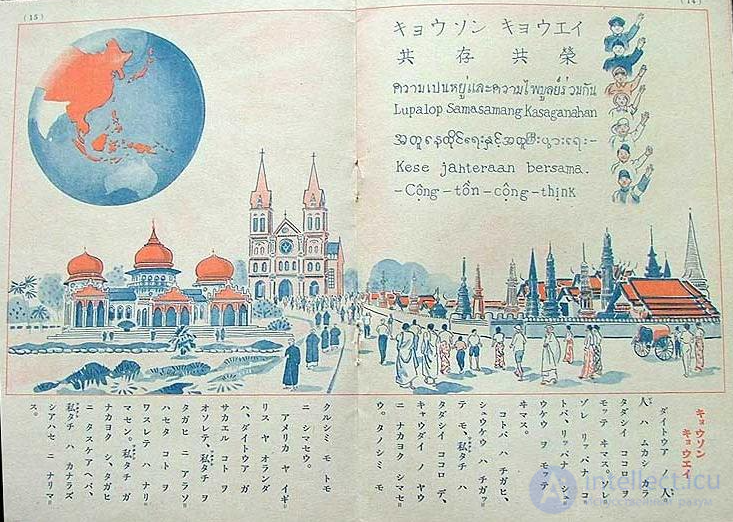 (15)
(14)
キョウソン キョウエイ
共存共榮
ความเปนหยู่และความไพบูลย์ร่วมกัน
Lupalop Samasamang Kasaganahan
အတူနေထိုင်ရေးနှင့်အတူကြီးပွားရေး-
Kese jahteraan bersama.
-Cộng-tồn-cộng-thịnk
キョウソン
キョウエイ
ダイトウア ノ 人
人 ハ ムカシ カラ
タダシイ ココロ ヲ
モッテ キマス。ソレ
ゾレ リッパナ コ
トバ、リッパナ シュ
ウケウ ヲ モテ
キマス。
コトバ ハ チガヒ、
シュウケウ ハ チガッ
テ モ、私タチ ハ
タダシイ ココロ デ、
キャウダイ ヤウ
ニ ナカヨク シマセ
ウ。タノシミ モ
クルシミ モ トモ
ニ シマセウ。
アメリカ ヤ イギ
リス ヤ オランダ
ハ、ダイトウア ガ
サカエル コト ヲ
オソレテ、私タチ ヲ
タガヒ ニ アラソ
ハセタ コト ヲ
ワスレテ ハ ナリ
マセン。私タチ ガ
ナカヨク シ、タガヒ
ニ タスケアヘバ、
私タチ ハ カナラズ
シアハセ ニ ナリマ
ス。
intellect.icu